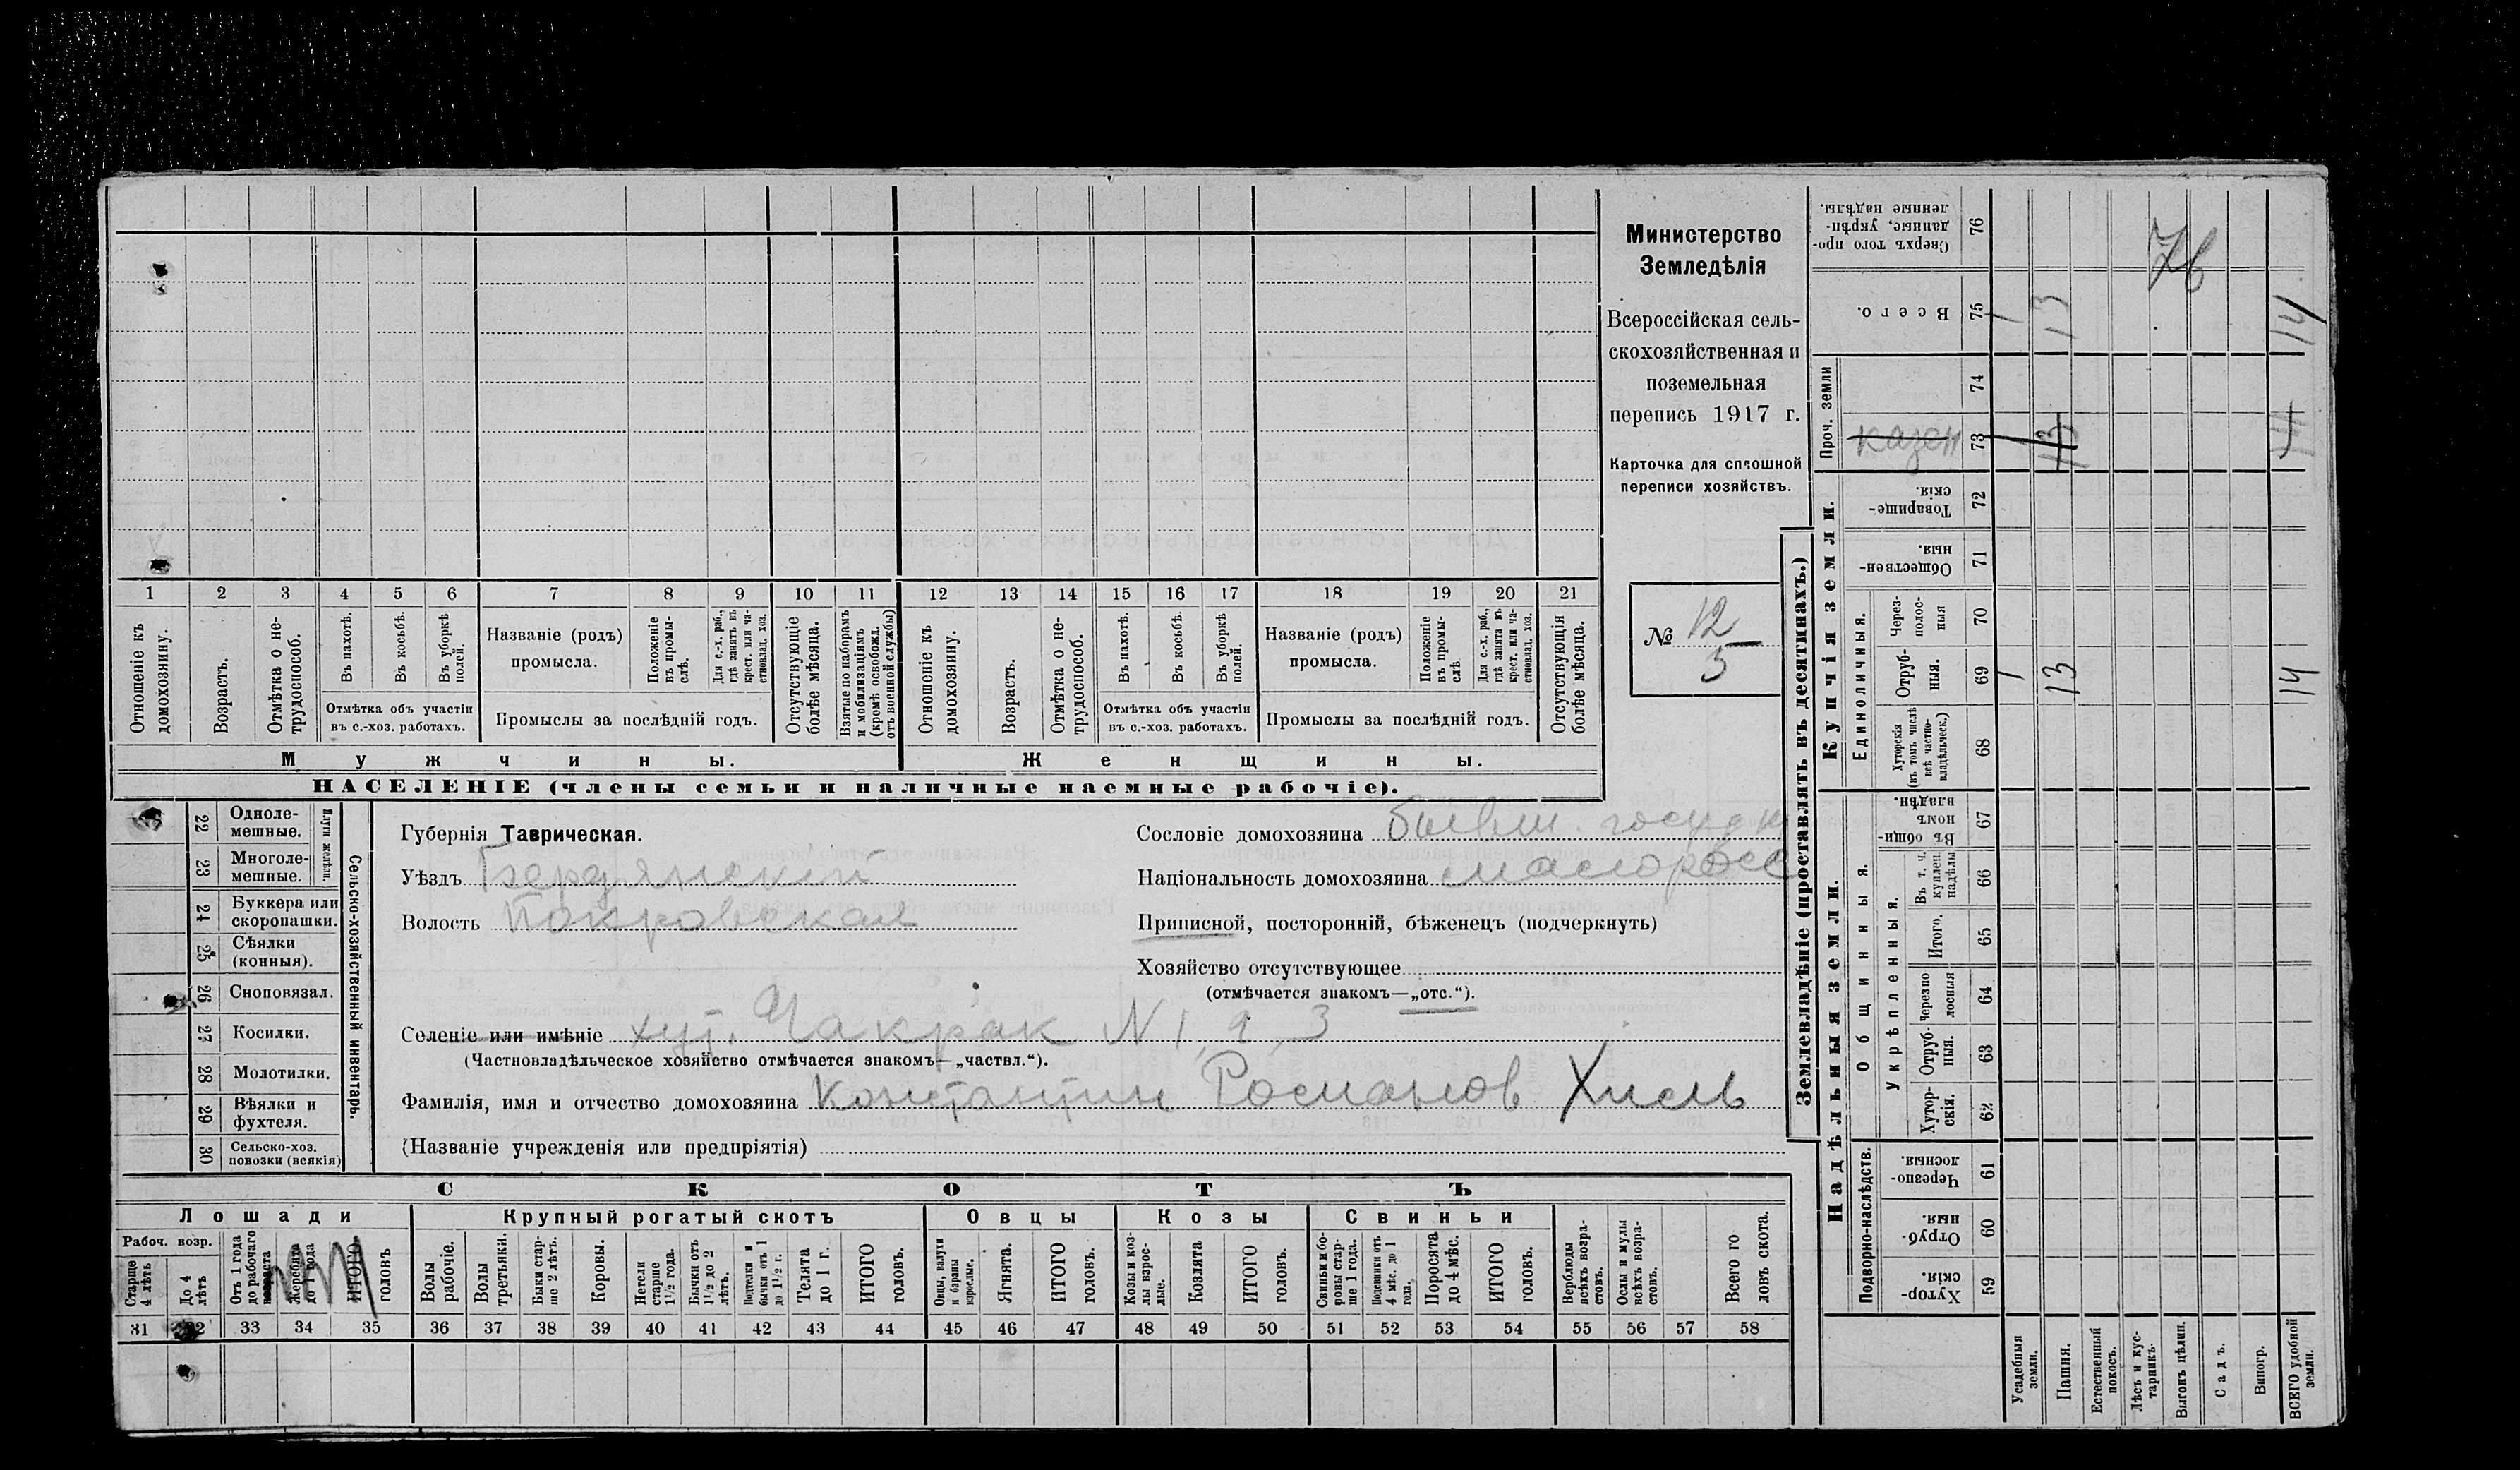 1 2 3 4 5 6 7 8 9 10 11 12 13 14 15 16 17 18 19 20 21
Отношеніе къ домохозяину.
Возрастъ.
Отмѣтка о не-
трудоспособ.
Въ пахотѣ.
Въ косьбѣ.
Въ уборкѣ полей.
Отмѣтка объ участіи
въ с.-хоз. работахъ.
Названіе (родъ)
промысла.
Положеніе въ промы-
слѣ.
Для с.-х. раб., гдѣ занятъ въ крест. или ча-
стновлад. хоз.
Промыслы за послѣдній годъ.
Отсутствующіе болѣе мѣсяца.
Взятые по наборамъ и мобилизаціямъ (кромѣ освобожд. отъ военной службы)
Отношеніе къ домохозяину.
Возрастъ.
Отмѣтка о не-
трудоспособ.
Въ пахотѣ.
Въ косьбѣ.
Въ уборкѣ полей.
Отмѣтка объ участіи
въ с.-хоз. работахъ.
Названіе (родъ)
промысла.
Положеніе въ промы-
слѣ
Для с.-х. раб., гдѣ занята въ крест. или ча-
стновлад. хоз.
Промыслы за послѣдній годъ.
Отсутствующія болѣе мѣсяца.
Мужчины.
Женщины.
НАСЕЛЕНІЕ (члены семьи и наличные наемные рабочіе).
Министерство
Земледѣлія
Всероссійская сель-
скохозяйственная и
поземельная
перепись 1917 г.
Карточка для сплошной
переписи хозяйствъ.
№ 12
5
22 Одноле-
мешные.
23 Многоле-
мешные.
Плуги желѣзн.
24 Буккера или
скоропашки.
25 Сѣялки
(конныя).
26 Сноповязал.
27 Косилки.
28 Молотилки.
29 Вѣялки и
фухтеля.
30 Сельско-хоз.
повозки (всякія)
Сельско-хозяйственный инвентарь.
Губернія Таврическая.
Уѣздъ Бердянскій
Волость Покровская
Сословіе домохозяина бывш. государ
Національность домохозяина малоросс
Приписной, посторонній, бѣженецъ (подчеркнуть)
Хозяйство отсутствующее
(отмѣчается знакомъ—„отс.“).
Селеніе или имѣніе хут. Чакрак N 1, 2, 3
(Частновладѣльческое хозяйство отмѣчается знакомъ—„частвл.“).
Фамилія, имя и отчество домохозяина Константин Романов Хмель
(Названіе учрежденія или предпріятія)
СКОТЪ
Лошади
Крупный рогатый скотъ
Овцы
Козы
Свиньи
Рабоч. возр.
Старше 4 лѣтъ
До 4 лѣтъ
Отъ 1 года до рабочаго возраста
Жеребята до 1 года
ИТОГО головъ
Волы рабочіе.
Волы третьяки.
Быки стар-
ше 2 лѣтъ.
Коровы.
Нетели старше 1½ года.
Бычки отъ 1½ до 2 лѣтъ.
Подтелки и бычки отъ 1 до 1½ г.
Телята до 1 г.
ИТОГО головъ.
Овцы, валухи и бараны взрослые.
Ягнята.
ИТОГО головъ.
Козы и коз-
лы взрос-
лые.
Козлята
ИТОГО головъ.
Свиньи и бо-
ровы стар-
ше 1 года.
Подсвинки отъ 4 мѣс. до 1 года.
Поросята до 4 мѣс.
ИТОГО головъ.
Верблюды всѣхъ возра-
стовъ.
Ослы и мулы всѣхъ возра-
стовъ.
Всего го
ловъ скота.
31 32 33 34 35 36 37 38 39 40 41 42 43 44 45 46 47 48 49 50 51 52 53 54 55 56 57 58
Землевладѣніе (проставлять въ десятинахъ.)
Надѣльныя земли.
Купчія земли.
Проч. земли
Подворно-наслѣдств.
Общинныя.
Укрѣпленныя.
Единоличныя.
Сверхъ того про-
данные, укрѣп-
ленные надѣлы. 76
Всего. 75 1 13 14
74
казен 73 1 13 14
Товарище-
скія. 72
Обществен-
ныя. 71
Через-
полос-
ныя 70
Отруб-
ныя. 69 1 13 14
Хуторскія (въ томъ числѣ всѣ частно-
владѣльческ.) 68
Въ общин-
номъ владѣн. 67
Въ т. ч. куплен. надѣлы 66
Итого. 65
Черезпо
лосныя 64
Отруб-
ныя. 63
Хутор-
скія. 62
Черезпо-
лосныя. 61
Отруб-
ныя. 60
Хутор-
скія. 59
Усадебныя земли.
Пашня.
Естественный покосъ.
Лѣсъ и кус-
тарникъ.
Выгонъ цѣлин.
Садъ.
Виногр.
ВСЕГО удобной земли.